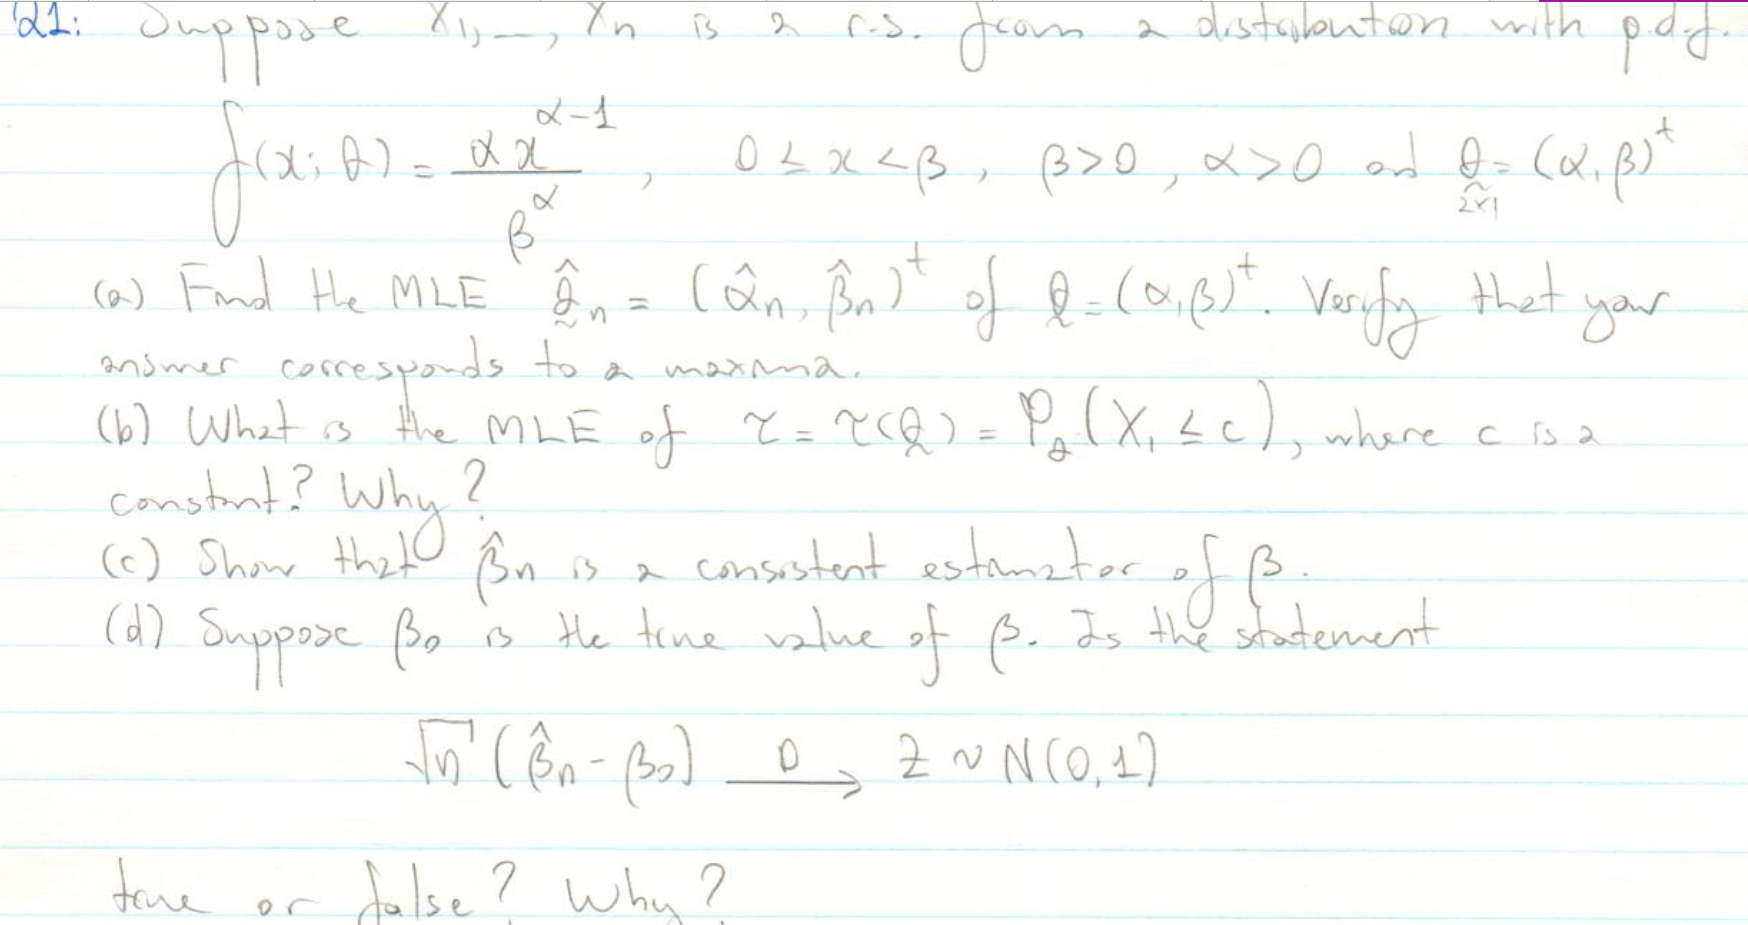 Q1: Suppose X₁, ..., Xₙ is a r.s. from a distribution with p.d.f.
f(x; θ) = αx^(α-1) / β^α, 0 ≤ x < β, β > 0, α > 0 and θ̰ = (α, β)^t
2×1
(a) Find the MLE θ̰̂ₙ = (α̂ₙ, β̂ₙ)^t of θ̰ = (α, β)^t. Verify that your
answer corresponds to a maxima.
(b) What is the MLE of τ = τ(θ̰) = P_θ̰(X₁ ≤ c), where c is a
constant? Why?
(c) Show that β̂ₙ is a consistent estimator of β.
(d) Suppose β₀ is the true value of β. Is the statement
√n (β̂ₙ - β₀) —D→ Z ~ N(0, 1)
true or false? Why?